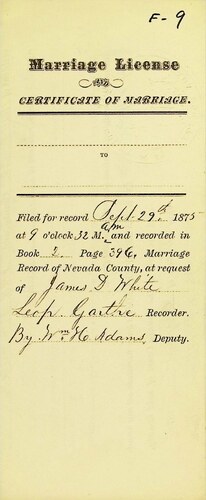 F-9
Marriage License
AND
CERTIFICATE OF MARRIAGE.
TO
Filed for record Sept. 29th. 1875
at 9 o'clock 32 M. am and recorded in
Book 2. Page 396, Marriage
Record of Nevada County, at request
of James D White
Leop. Garthe Recorder.
By Wm. H Adams, Deputy.